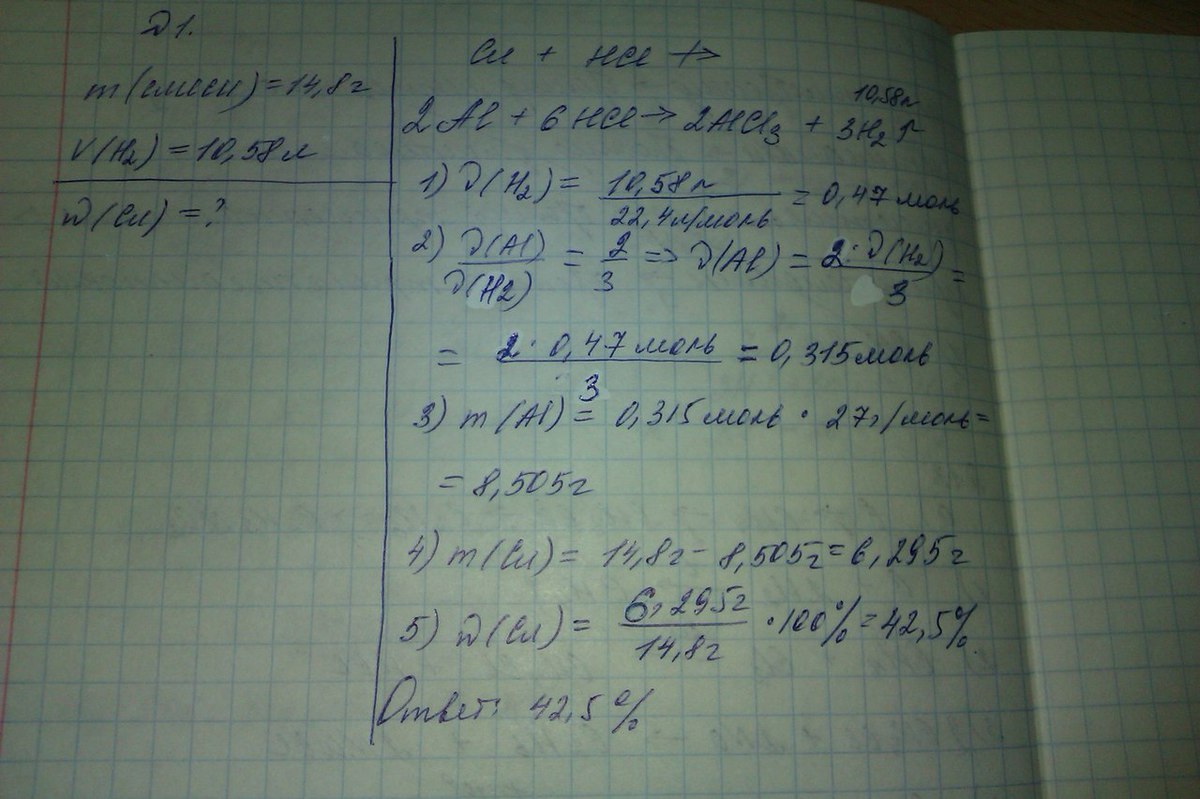 Д1.
m(смеси) = 14,8г
V(H₂) = 10,58л
ω(Cu) = ?
Cu + HCl ↛
10,58л
2Al + 6HCl → 2AlCl₃ + 3H₂↑
1) ν(H₂) = 10,58л / 22,4л/моль = 0,47 моль
2) ν(Al) / ν(H2) = 2/3 => ν(Al) = 2·ν(H₂) / 3 =
= 2·0,47 моль / 3 = 0,315 моль
3) m(Al) = 0,315 моль · 27г/моль =
= 8,505г
4) m(Cu) = 14,8г - 8,505г = 6,295г
5) ω(Cu) = 6,295г / 14,8г · 100% = 42,5%
Ответ: 42,5%